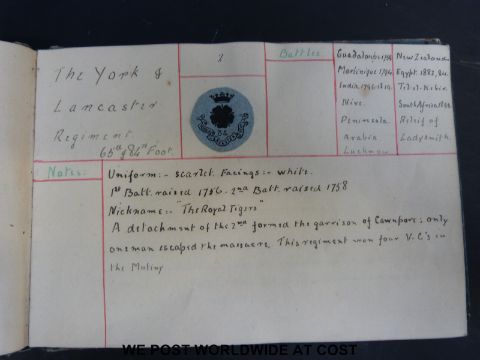 The York &
Lancaster
Regiment.
65th & 84th Foot.
2
84
Battles.
Guadaloupe 1759
Martinique 1794
India 1796-1819.
Nive.
Peninsula
Arabia
Lucknow
New Zealand
Egypt. 1882, 84.
Tel-el-Kebir
South Africa
Relief of
Ladysmith.
Notes:
Uniform:- Scarlet. Facings:- white.
1st Batt. raised 1756. 2nd Batt. raised 1758
Nickname:- "The Royal Tigers"
A detachment of the 2nd formed the garrison of Cawnpore, only
one man escaped the massacre. This regiment won four V.C's in
the Mutiny
WE POST WORLDWIDE AT COST